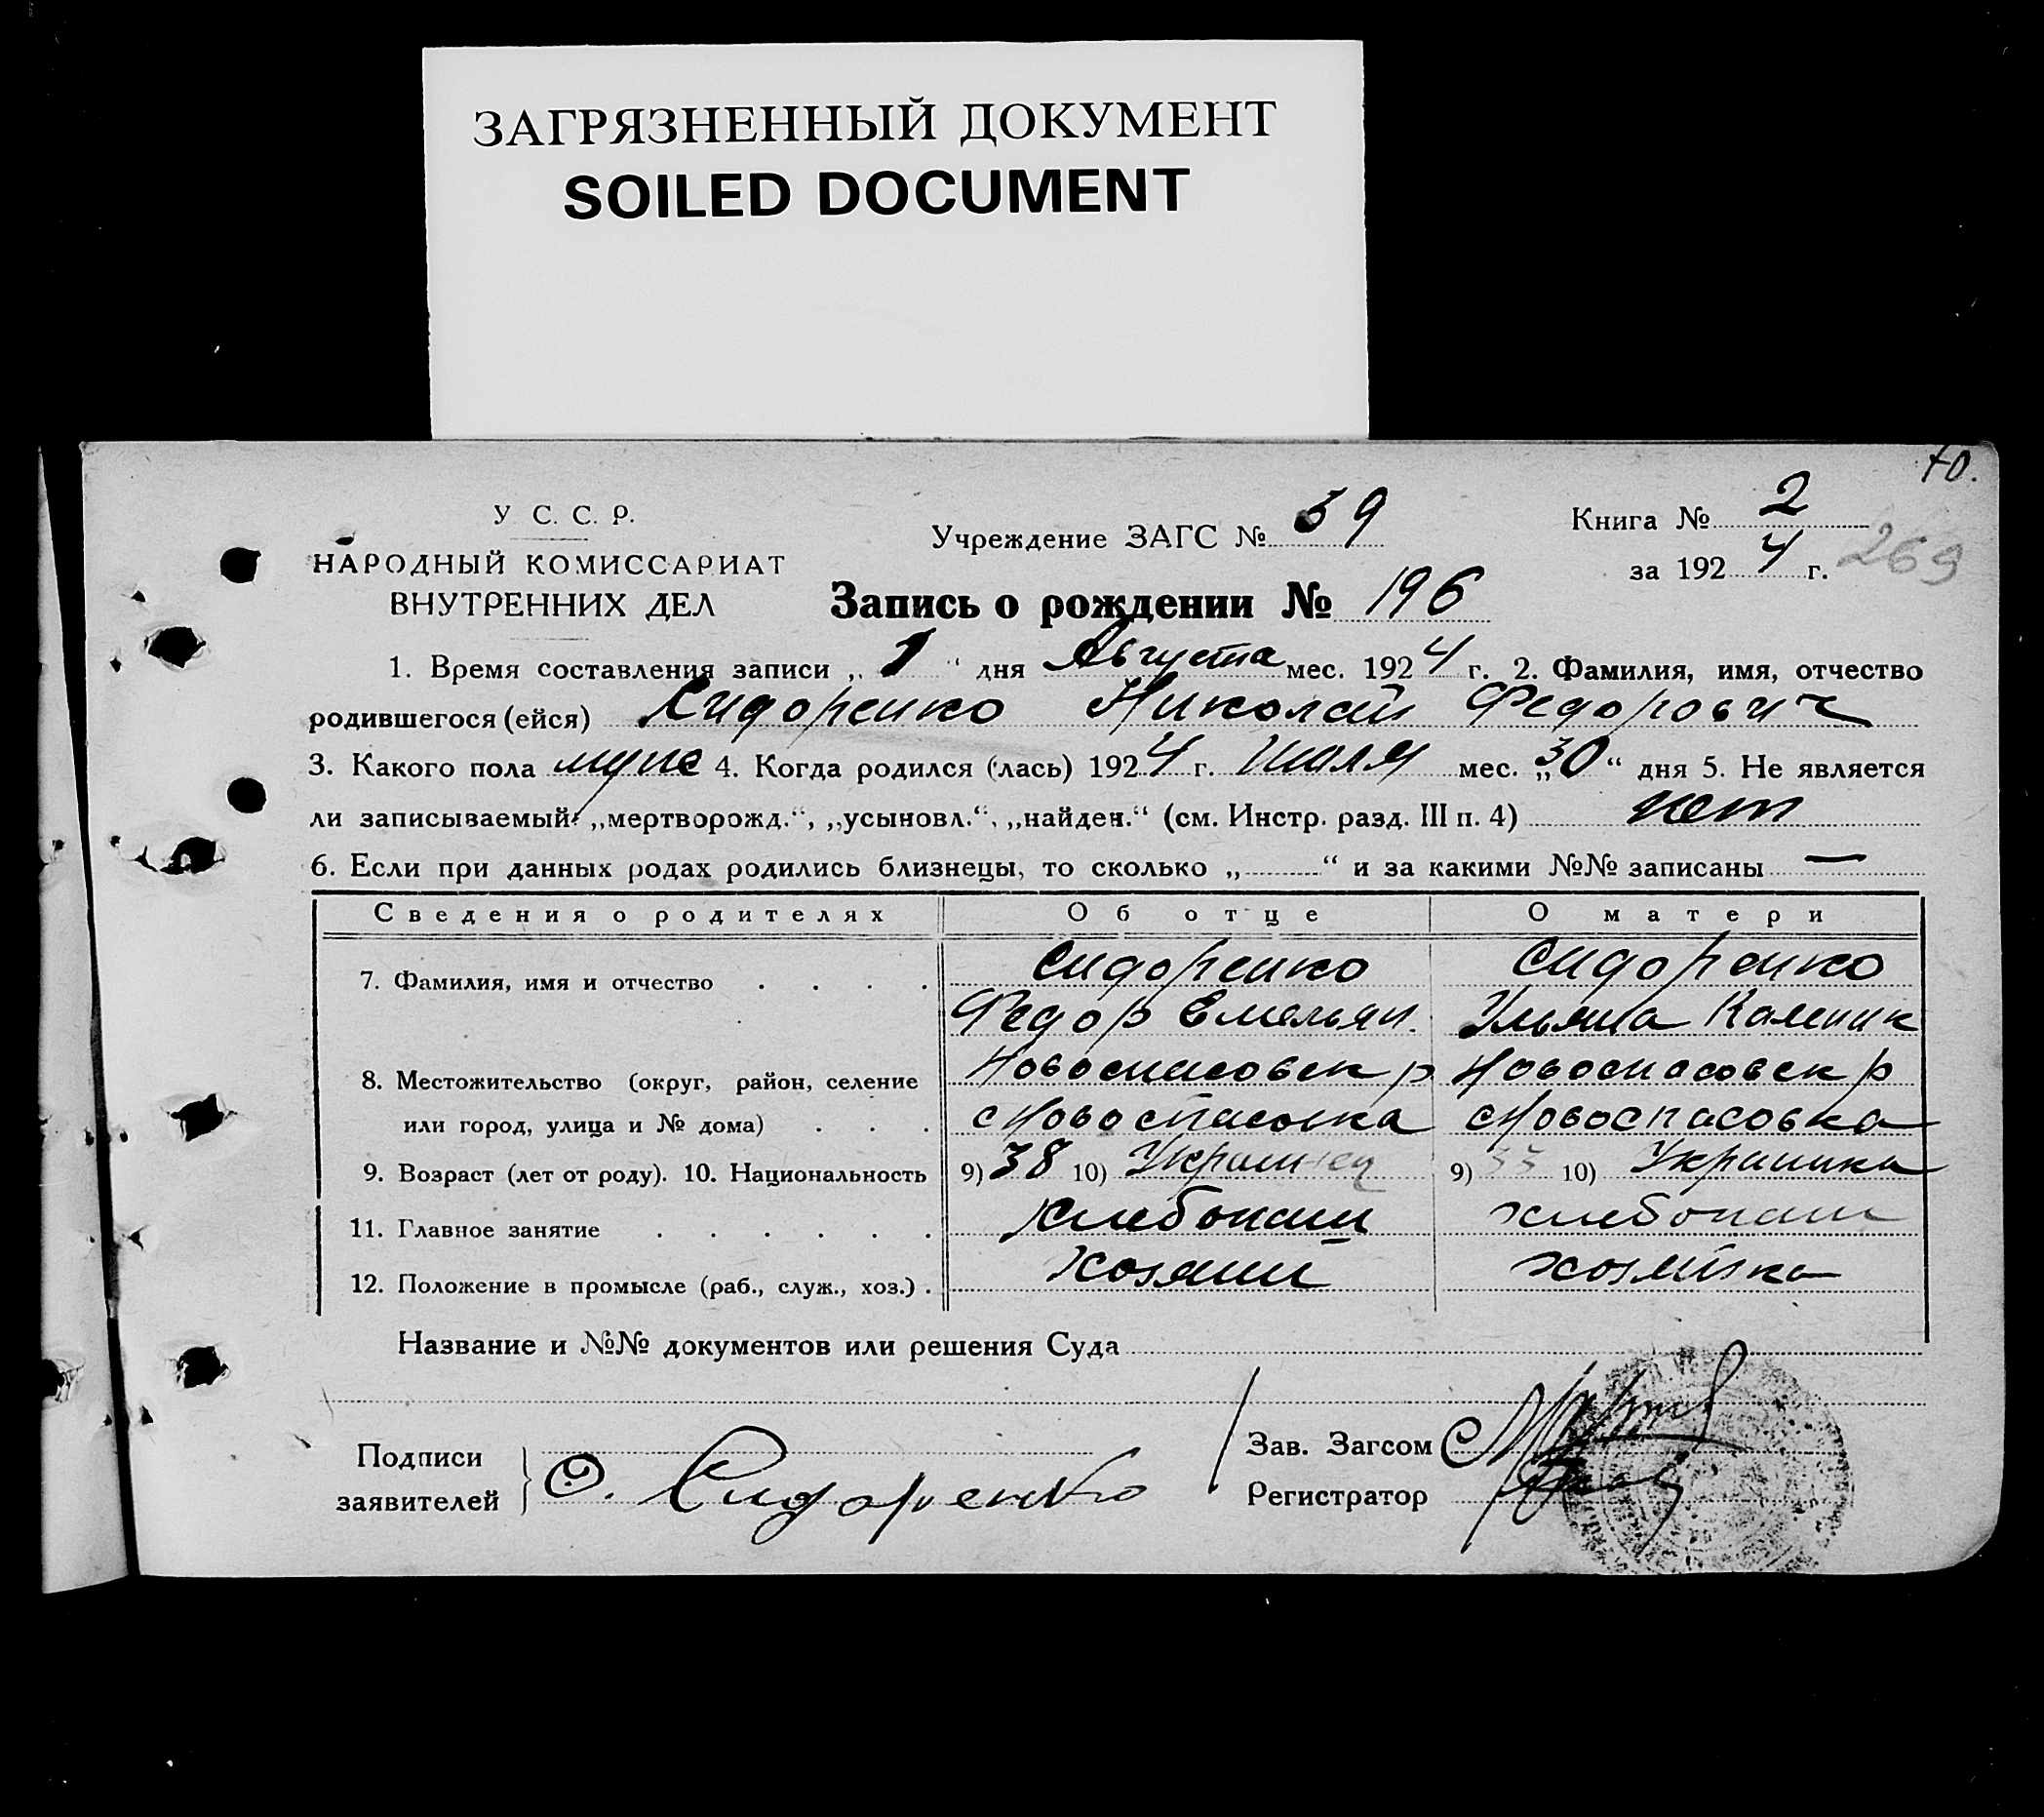 ЗАГРЯЗНЕННЫЙ ДОКУМЕНТ
SOILED DOCUMENT
10.
У С. С. Р.
НАРОДНЫЙ КОМИССАРИАТ
ВНУТРЕННИХ ДЕЛ
Учреждение ЗАГС № 39
Книга № 2
за 1924 г. 269
Запись о рождении № 196
1. Время составления записи „1“ дня Августа мес. 1924 г. 2. Фамилия, имя, отчество
родившегося (ейся) Сидоренко Николай Федорович
3. Какого пола муж 4. Когда родился (лась) 1924 г. Июля мес. „30“ дня 5. Не является
ли записываемый: „мертворожд.“, „усыновл.“, „найден.“ (см. Инстр. разд. III п. 4) нет
6. Если при данных родах родились близнецы, то сколько „ “ и за какими №№ записаны —
Сведения о родителях Об отце О матери
7. Фамилия, имя и отчество Сидоренко Сидоренко
Федор Емельян. Ульяна Калиник
8. Местожительство (округ, район, селение Новоспасовск р Новоспасовск р
или город, улица и № дома) с Новоспасовка с Новоспасовка
9. Возраст (лет от роду). 10. Национальность 9) 38 10) Украинец 9) 33 10) Украинка
11. Главное занятие хлебопаш хлебопаш
12. Положение в промысле (раб., служ., хоз.) хозяин хозяйка
Название и №№ документов или решения Суда
Подписи
заявителей Ф. Сидоренко
Зав. Загсом
Регистратор